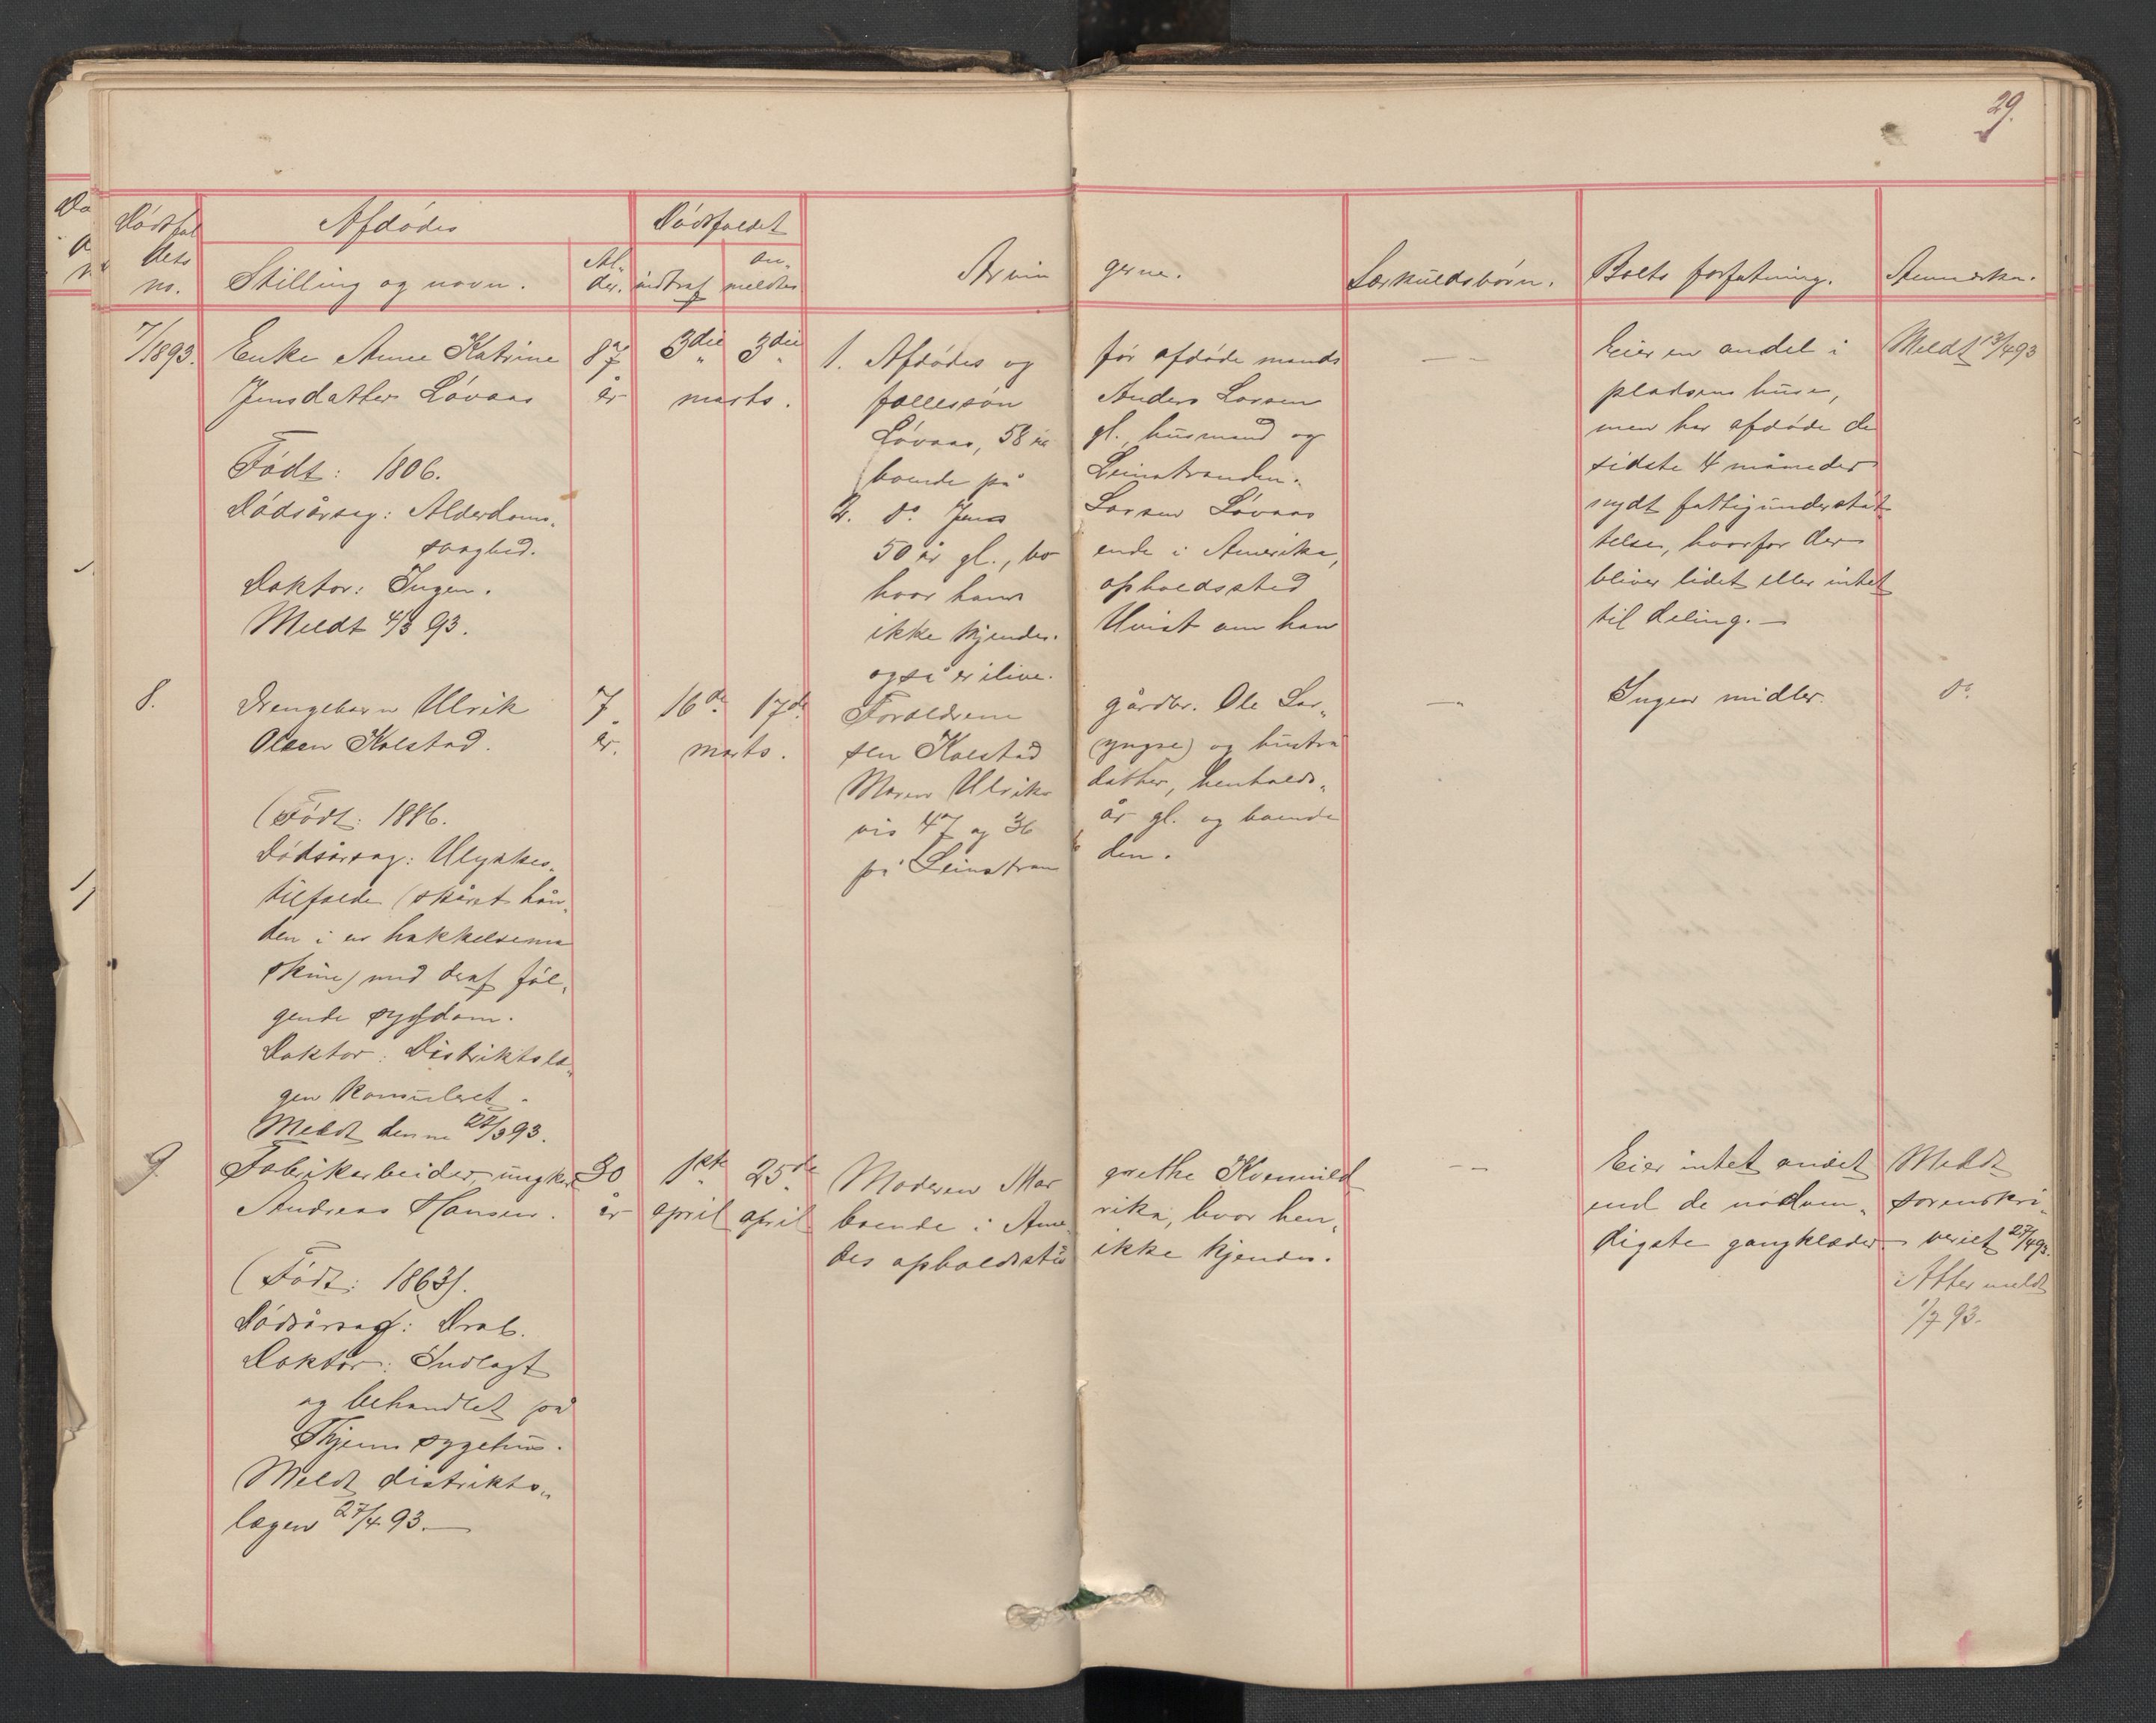 29.
Dødsfal
dets
no.
Afdødes
Stilling og navn.
Al-
der.
Dødsfaldet
indtraf
an-
meldtes
Arvin gerne.
Særkuldsbørn.
Boets forfatning.
Anmerkn.
7/1893.
Enke Anne Katrine
Jensdatter Løvaas
Født: 1806.
Dødsårsag: Alderdoms-
svaghed.
Doktor: Ingen.
Meldt 4/3 93.
87
år
3die 3die
marts.
1. Afdødes og før afdøde mands
fællessøn Anders Larsen
Løvaas, 58 år gl., husmand og
boende på Leinstranden.
2. do. Jens Larsen Løvaas
50 år gl., bo ende i Amerika,
hvor hans opholdssted
ikke kjendes. Uvist om han
også er ilive.
Eier en andel i
pladsens huse,
men har afdøde de
sidste 4 måneder
nydt fattigunderstøt-
telse, hvorfor der
bliver lidet eller intet
til deling. —
Meldt 13/4 93
8.
Drengebarn Ulrik
Olsen Kolstad.
(Født: 1886.
Dødsårsag: Ulykkes-
tilfælde (skåret hån-
den i en hakkelsema
skine) med deraf føl-
gende sygdom.
Doktor: Distriktslæ-
gen konsuleret.
Meldt denne 27/3 93.
7
år.
16de 17de
marts.
Forældrene gårdbr. Ole Lar-
sen Kolstad (yngre) og hustru
Maren Ulriks datter, henholds-
vis 47 og 36 år gl. og boende
på Leinstran den.
Ingen midler.
do
9.
Fabrikarbeider, ungkar
Andreas Hansen.
(Født: 1863).
Dødsårsag: Drab.
Doktor: Indlagt
og behandlet på
Thjems sygehus.
Meldt distrikts-
lægen 27/4 93. —
30
år
1ste 25de
april april
Moderen Mar grethe Kvenild,
boende i Ame rika, hvor hen-
des opholdssted ikke kjendes.
Eier intet andet
end de nødven-
digste gangklæder.
Meldt
sorenskri-
veriet 27/4 93.
Atter meldt
1/7 93.